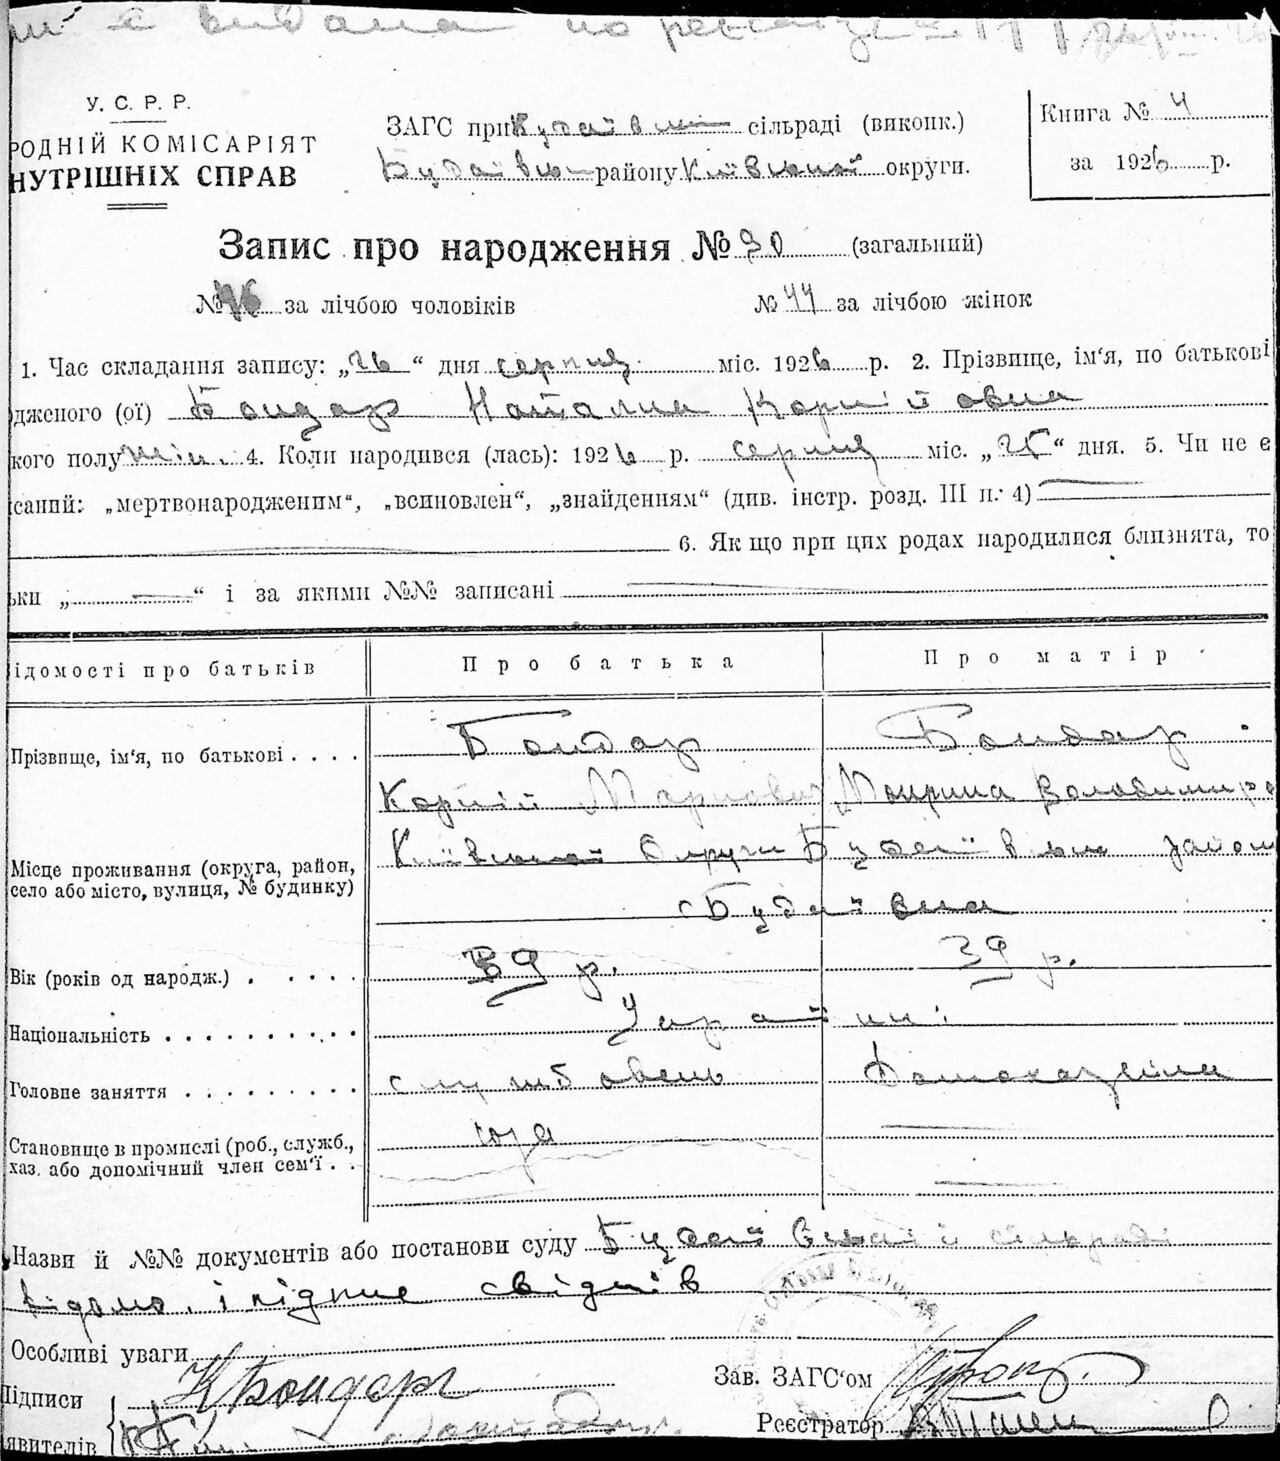 видана по реєстру
У. С. Р. Р.
РОДНІЙ КОМІСАРІЯТ
НУТРІШНІХ СПРАВ
ЗАГС при Будаївській сільраді (виконк.)
Будаївськ району Київської округи.
Книга № 4
за 1926 р.
Запис про народження № 90 (загальний)
№ 46 за лічбою чоловіків № 44 за лічбою жінок
1. Час складання запису: „26“ дня серпня міс. 1926 р. 2. Прізвище, ім‘я, по батькові
дженого (ої) Бондар Наталия Корнійовна
кого полу жін. 4. Коли народився (лась): 1926 р. серпня міс. „25“ дня. 5. Чи не є
саний: „мертвонародженим“, „всиновлен“, „знайденням“ (див. інстр. розд. III п. 4)
6. Як що при цих родах народилися близнята, то
ьки „ “ і за якими №№ записані
ідомості про батьків Про батька Про матір
Прізвище, ім‘я, по батькові . . . . Бондар Бондар
Корній Маркович Мокрина Володимиро
Місце проживання (округа, район, село або місто, вулиця, № будинку) Київської Округи Будаївськ район
с Будаївка
Вік (років од народж.) . . . . . 39 р. 39 р.
Національність . . . . . . . . . . Українці
Головне заняття . . . . . . . . . службовець Домохазяйка
Становище в промислі (роб., служб.,
хаз. або допомічний член сем‘ї . .
Назви й №№ документів або постанови суду Будаївській сільраді
відомо і підпис свідків
Особливі уваги
Підписи К Бондар Зав. ЗАГС‘ом
явителів Реєстратор